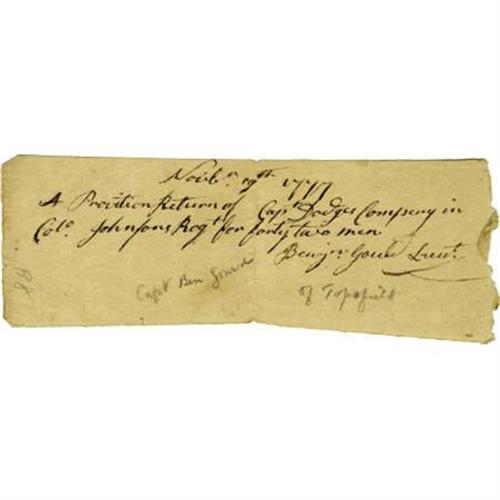 Novbr 19th 1777
A Provition Return of Capt Dodges Company in
Colo Johnsons Regt for forty two men
Benjn Goue Lieut
Capt Ben Goue
of Topsfield